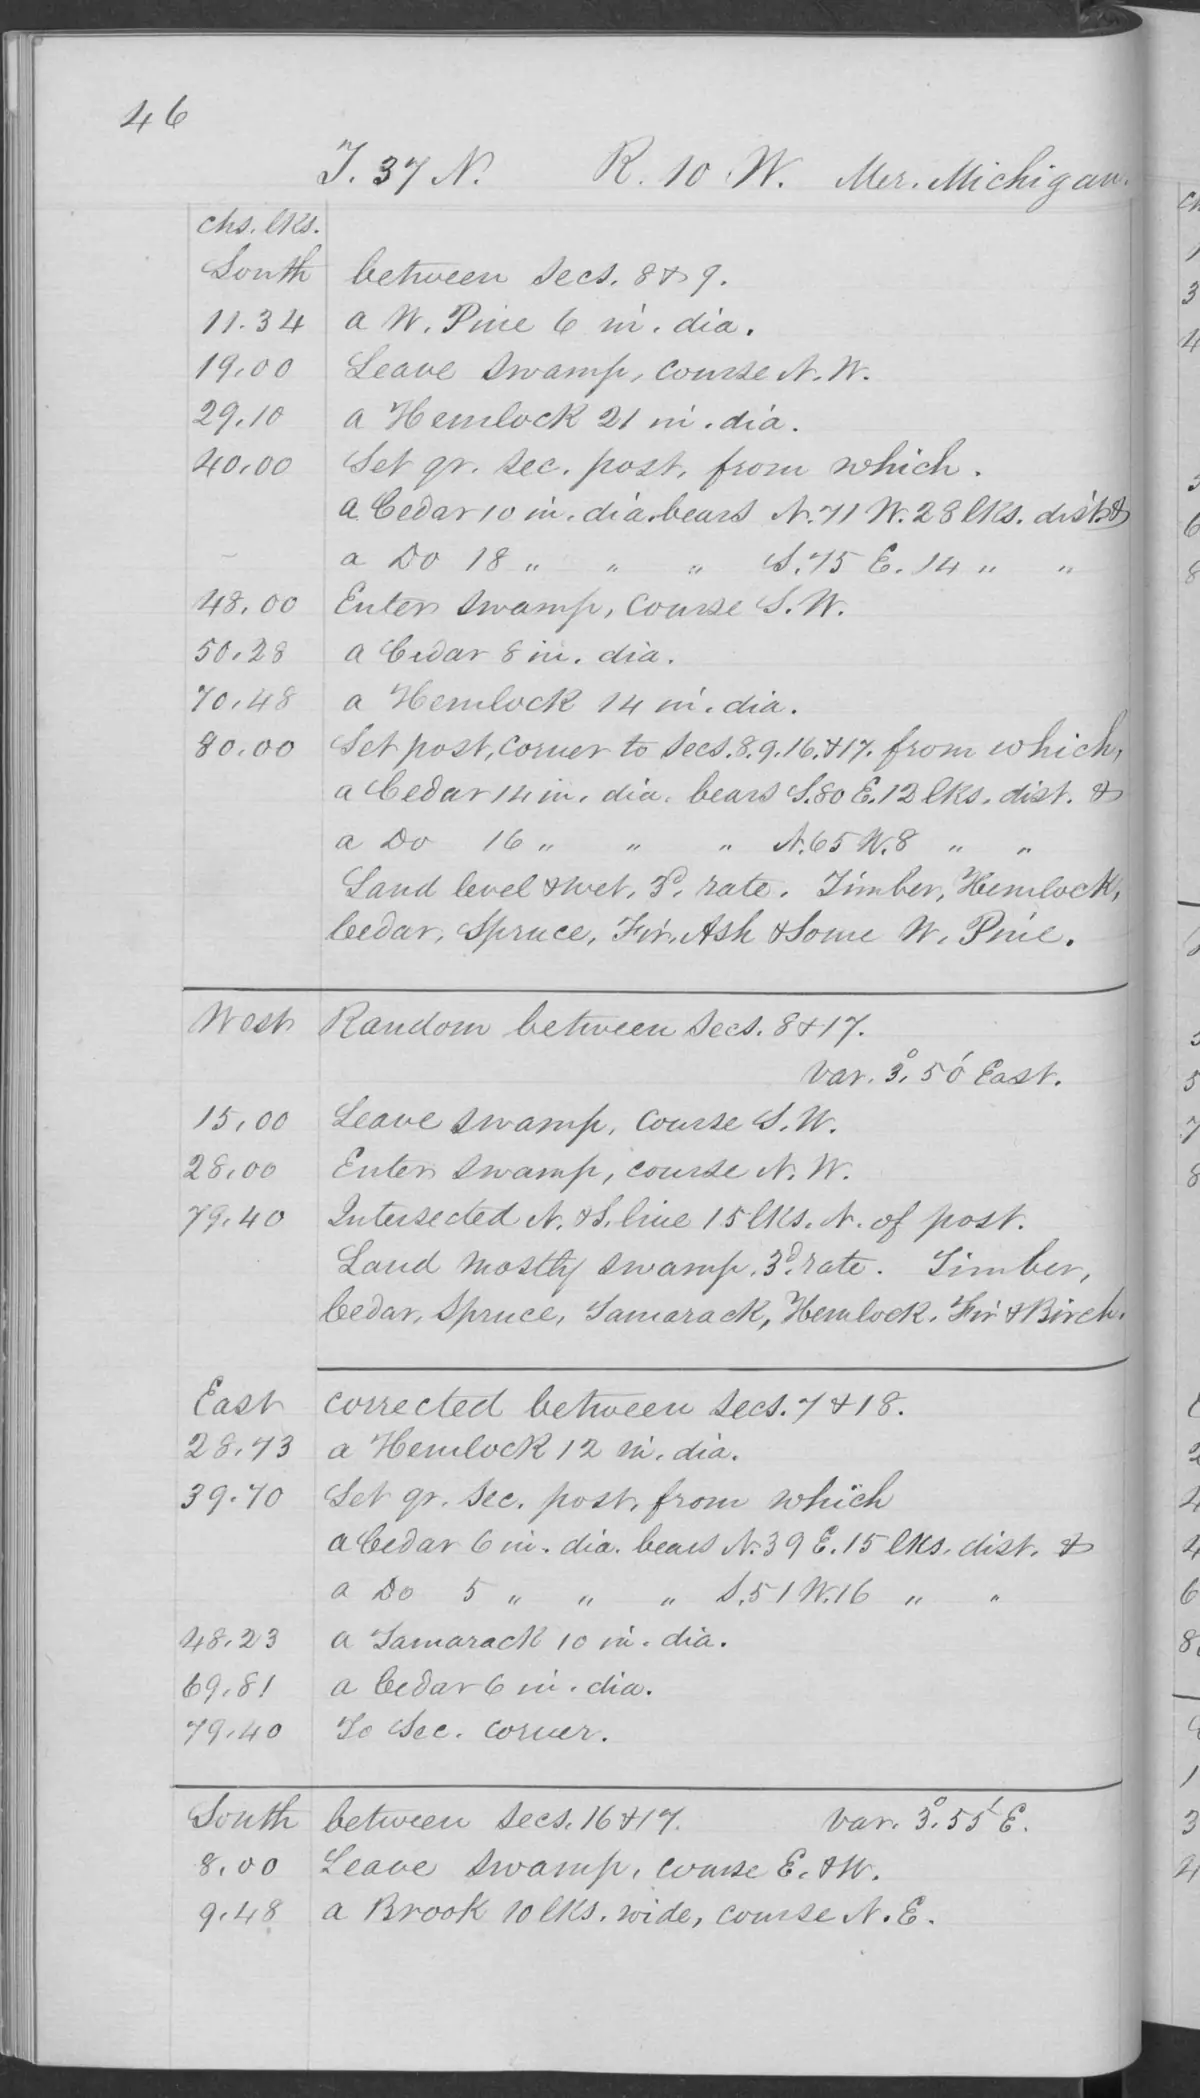 46
T. 37 N. R. 10 W. Mer. Michigan.
chs. lks.
South between Secs. 8 & 9.
11.34 a W. Pine 6 in. dia.
19.00 Leave Swamp, course N.W.
29.10 a Hemlock 21 in. dia.
40.00 Set qr. Sec. post, from which.
a Cedar 10 in. dia. bears N. 71 W. 28 lks. dist. &
a Do 18 " " " S. 75 E. 14 " "
48.00 Enter Swamp, Course S.W.
50.28 a Cedar 8 in. dia.
70.48 a Hemlock 14 in. dia.
80.00 Set post, Corner to Secs. 8. 9. 16. & 17. from which,
a Cedar 14 in. dia. bears S. 80 E. 12 lks. dist. &
a Do 16 " " " N. 65 W. 8 " "
Land level & wet, 3d. rate. Timber, Hemlock,
Cedar, Spruce, Fir, Ash & Some W. Pine.
West Random between Secs. 8 & 17.
Var. 3.° 50' East.
15.00 Leave Swamp, Course S.W.
28.00 Enter Swamp, course N.W.
79.40 Intersected N. & S. line 15 lks. N. of post.
Land mostly Swamp, 3d. rate. Timber,
Cedar, Spruce, Tamarack, Hemlock, Fir & Birch.
East corrected between Secs. 7 & 18.
28.73 a Hemlock 12 in. dia.
39.70 Set qr. Sec. post, from which
a Cedar 6 in. dia. bears N. 39 E. 15 lks. dist. &
a Do 5 " " " S. 51 W. 16 " "
48.23 a Tamarack 10 in. dia.
69.81 a Cedar 6 in. dia.
79.40 To Sec. corner.
South between Secs. 16 & 17. Var. 3.° 55' E.
8.00 Leave Swamp, course E. & W.
9.48 a Brook 10 lks. wide, course N.E.